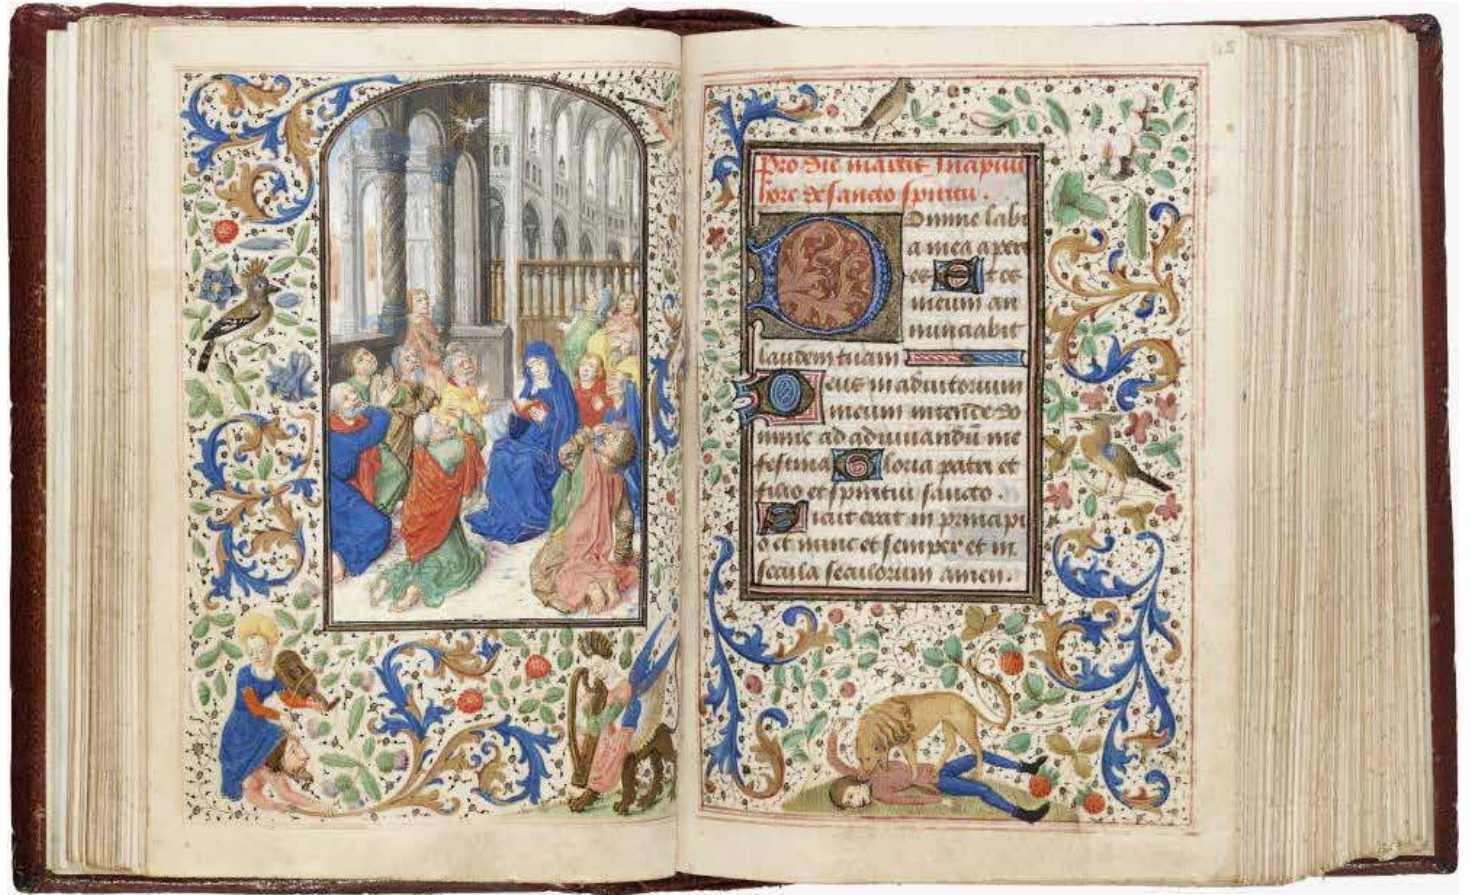 48
Pro die martis Incipiūt
hore de sancto spiritu .
Domine labi
a mea aperi
es Et os
meum an
nunciabit
laudem tuam
Deus in adiutorium
meum intende Do
mine ad adiuuandū me
festina Gloria patri et
filio et spiritui sancto .
Sicut erat in principi
o et nunc et semper et in
secula seculorum amen .